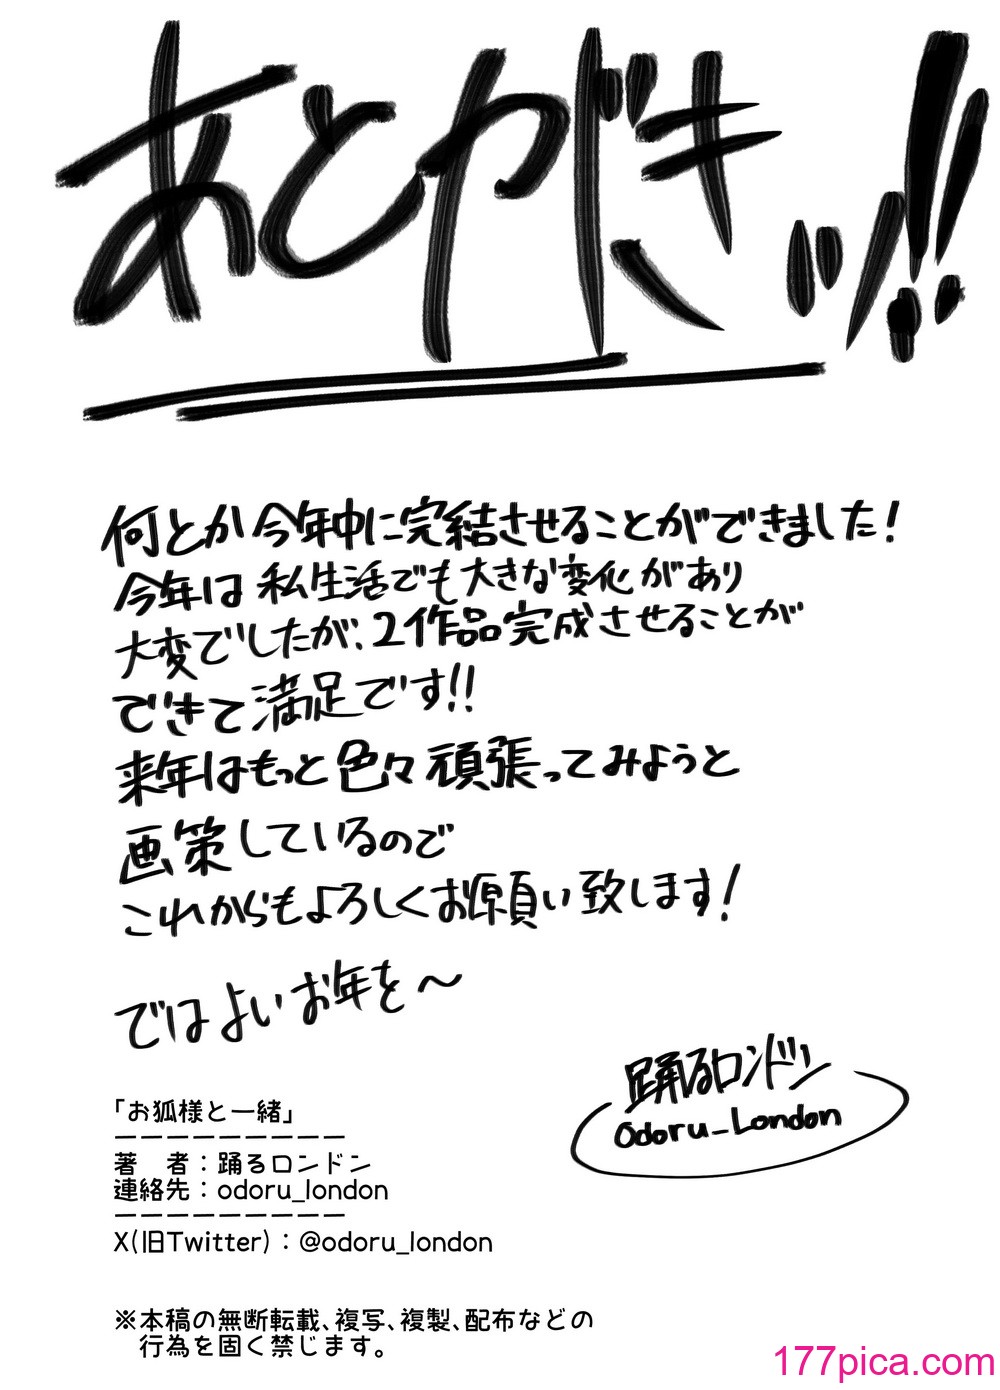 あとがきッ!!
何とか今年中に完結させることができました!
今年は私生活でも大きな変化があり
大変でしたが、2作品完成させることが
できて満足です!!
来年はもっと色々頑張ってみようと
画策しているので
これからもよろしくお願い致します!
ではよいお年を〜
踊るロンドン
Odoru_London
「お狐様と一緒」
ーーーーーーーーー
著　者：踊るロンドン
連絡先：odoru_london
ーーーーーーーーー
X(旧Twitter)：@odoru_london
※本稿の無断転載、複写、複製、配布などの
行為を固く禁じます。
177pica.com